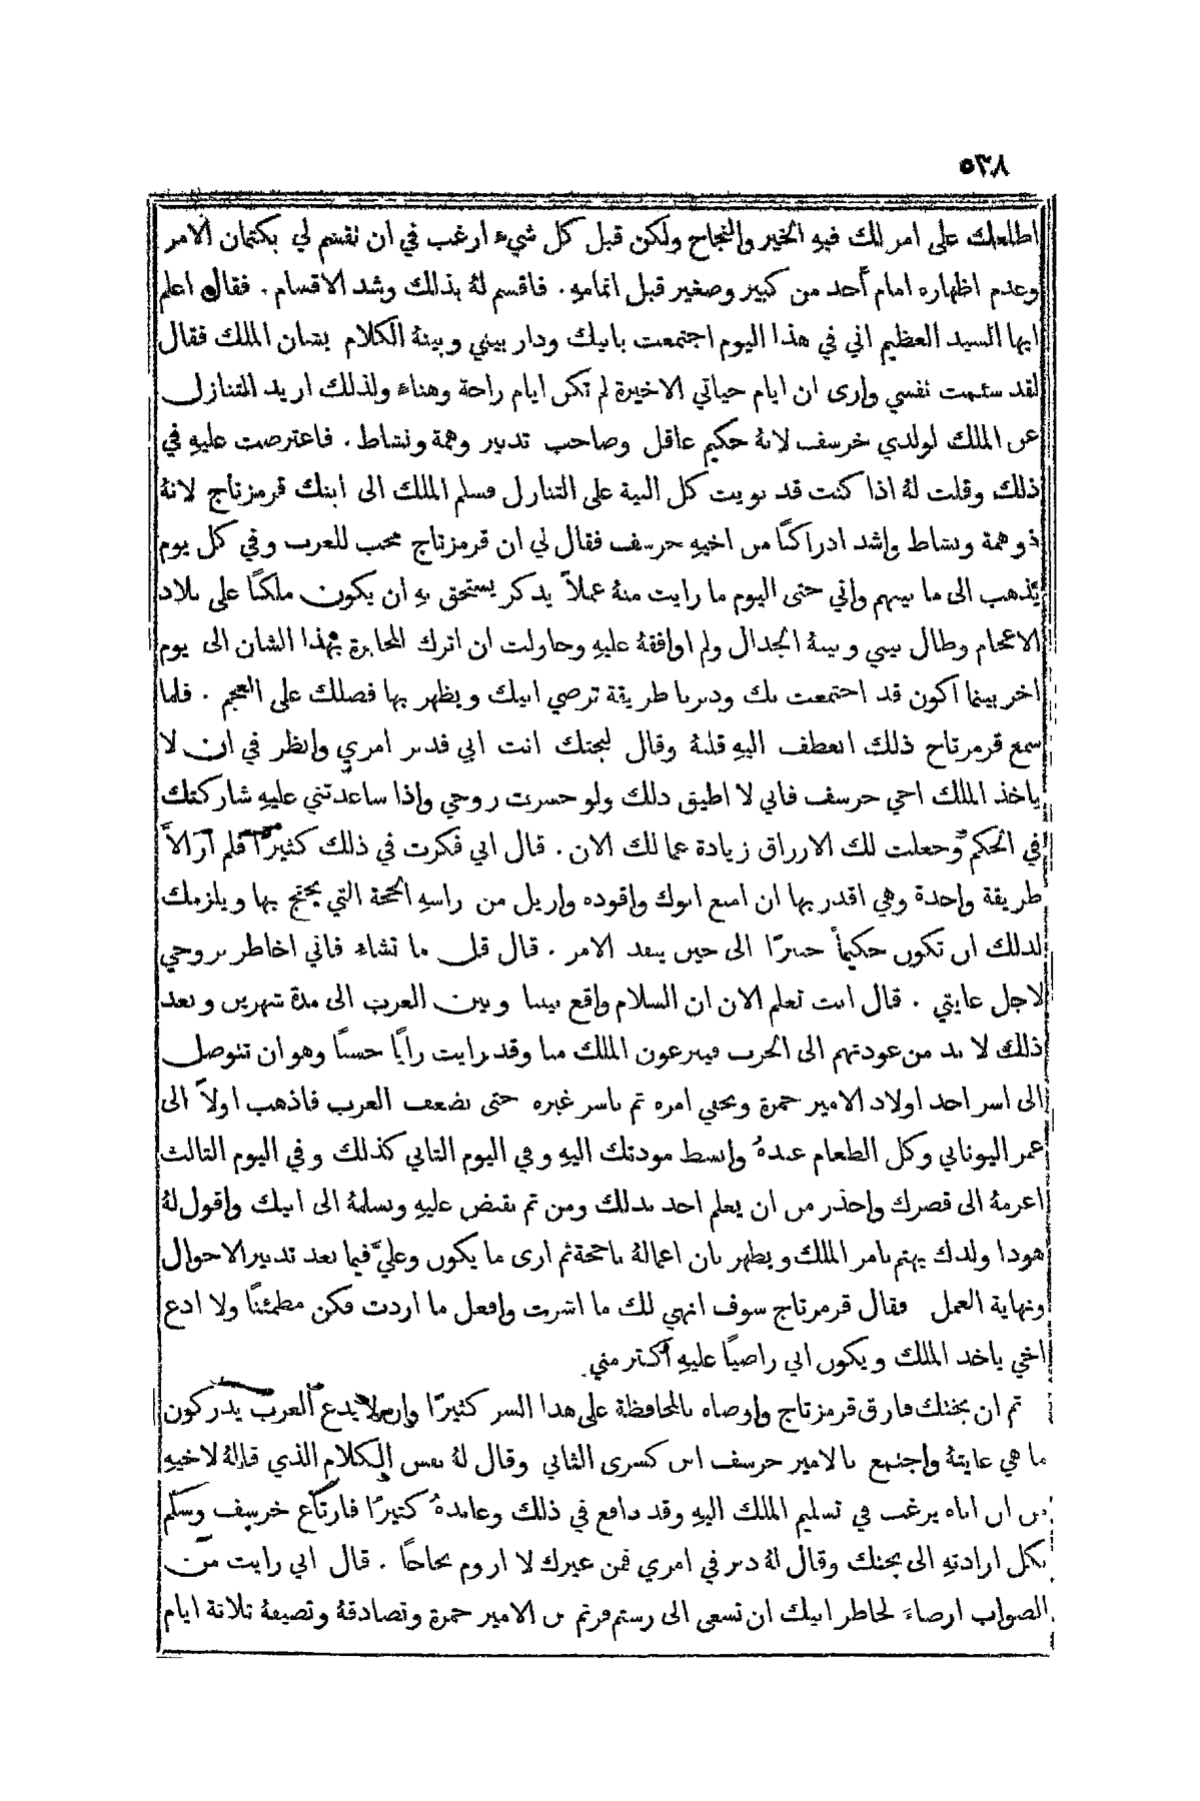 ٥٣٨
اطلعك على امر لك فيهِ الخير والنجاح ولكن قبل كل شيء ارغب في ان تقسم لي بكتمان الامر
وعدم اظهاره امام أحد من كبير وصغير قبل اتمامهِ . فاقسم لهُ بذلك وشد الاقسام . فقال اعلم
ايها السيد العظيم اني في هذا اليوم اجتمعت بابيك ودار بيني وبينهُ الكلام بشان الملك فقال
لقد سئمت نفسي وارى ان ايام حياتي الاخيرة لم تكن ايام راحة وهناء ولذلك اريد التنازل
عن الملك لولدي خرسف لانهُ حكيم عاقل وصاحب تدبير وهمة ونشاط . فاعترضت عليهِ في
ذلك وقلت لهُ اذا كنت قد نويت كل النية على التنازل فسلم الملك الى ابنك قرمزتاج لانهُ
ذو همة ونشاط واشد ادراكًا من اخيهِ خرسف فقال لي ان قرمزتاج محب للعرب وفي كل يوم
يذهب الى ما بينهم واني حتى اليوم ما رايت منهُ عملاً يذكر يستحق بهِ ان يكون ملكًا على بلاد
الاعجام وطال بيني وبينهُ الجدال ولم اوافقهُ عليهِ وحاولت ان اترك المخابرة بهذا الشان الى يوم
اخر بينما اكون قد اجتمعت بك ودبرنا طريقة ترضي ابيك ويظهر بها فضلك على العجم . فلما
سمع قرمزتاج ذلك انعطف اليهِ قلبهُ وقال لبختك انت ابي فدبر امري وانظر في ان لا
ياخذ الملك اخي خرسف فاني لا اطيق ذلك ولو خسرت روحي واذا ساعدتني عليهِ شاركتك
في الحكم وجعلت لك الارزاق زيادة عما لك الان . قال اني فكرت في ذلك كثيرًا فلم ارَ الاَّ
طريقة واحدة وهي اقدر بها ان امنع ابوك واقوده وازيل من راسهِ الحجة التي يحتج بها ويلزمك
لذلك ان تكون حكيماً خبيرًا الى حين ينفد الامر . قال قل ما تشاء فاني اخاطر بروحي
لاجل غايتي . قال انت تعلم الان ان السلام واقع بيننا وبين العرب الى مدة شهرين وبعد
ذلك لا بد من عودتهم الى الحرب فينزعون الملك منا وقد رايت رايًا حسنًا وهو ان تتوصل
الى اسر احد اولاد الامير حمزة ونخفي امره ثم ناسر غيره حتى نضعف العرب فاذهب اولاً الى
عمر اليوناني وكل الطعام عندهُ وابسط مودتك اليهِ وفي اليوم الثاني كذلك وفي اليوم الثالث
اعزمهُ الى قصرك واحذر من ان يعلم احد بذلك ومن ثم نقبض عليهِ ونسلمهُ الى ابيك واقول لهُ
هوذا ولدك يهتم بامر الملك ويظهر بان اعمالهُ ناجحة ثم ارى ما يكون وعليَّ فيما بعد تدبير الاحوال
ونهاية العمل فقال قرمزتاج سوف انهي لك ما اشرت وافعل ما اردت فكن مطمئنًا ولا ادع
اخي ياخذ الملك ويكون ابي راضيًا عليهِ اكثر مني .
ثم ان بختك فارق قرمزتاج واوصاه بالمحافظة على هذا السر كثيرًا وان لا يدع العرب يدركون
ما هي غايتهُ واجتمع بالامير خرسف ابن كسرى الثاني وقال لهُ نفس الكلام الذي قالهُ لاخيهِ
من ان اباه يرغب في تسليم الملك اليهِ وقد دافع في ذلك وعاندهُ كثيرًا فارتاع خرسف وسلم
بكل ارادتهِ الى بختك وقال لهُ دبر في امري فمن غيرك لا اروم نجاحًا . قال اني رايت من
الصواب ارضاءَ لخاطر ابيك ان تسعى الى رستم فرتم بن الامير حمزة وتصادقهُ وتضيفهُ ثلاثة ايام